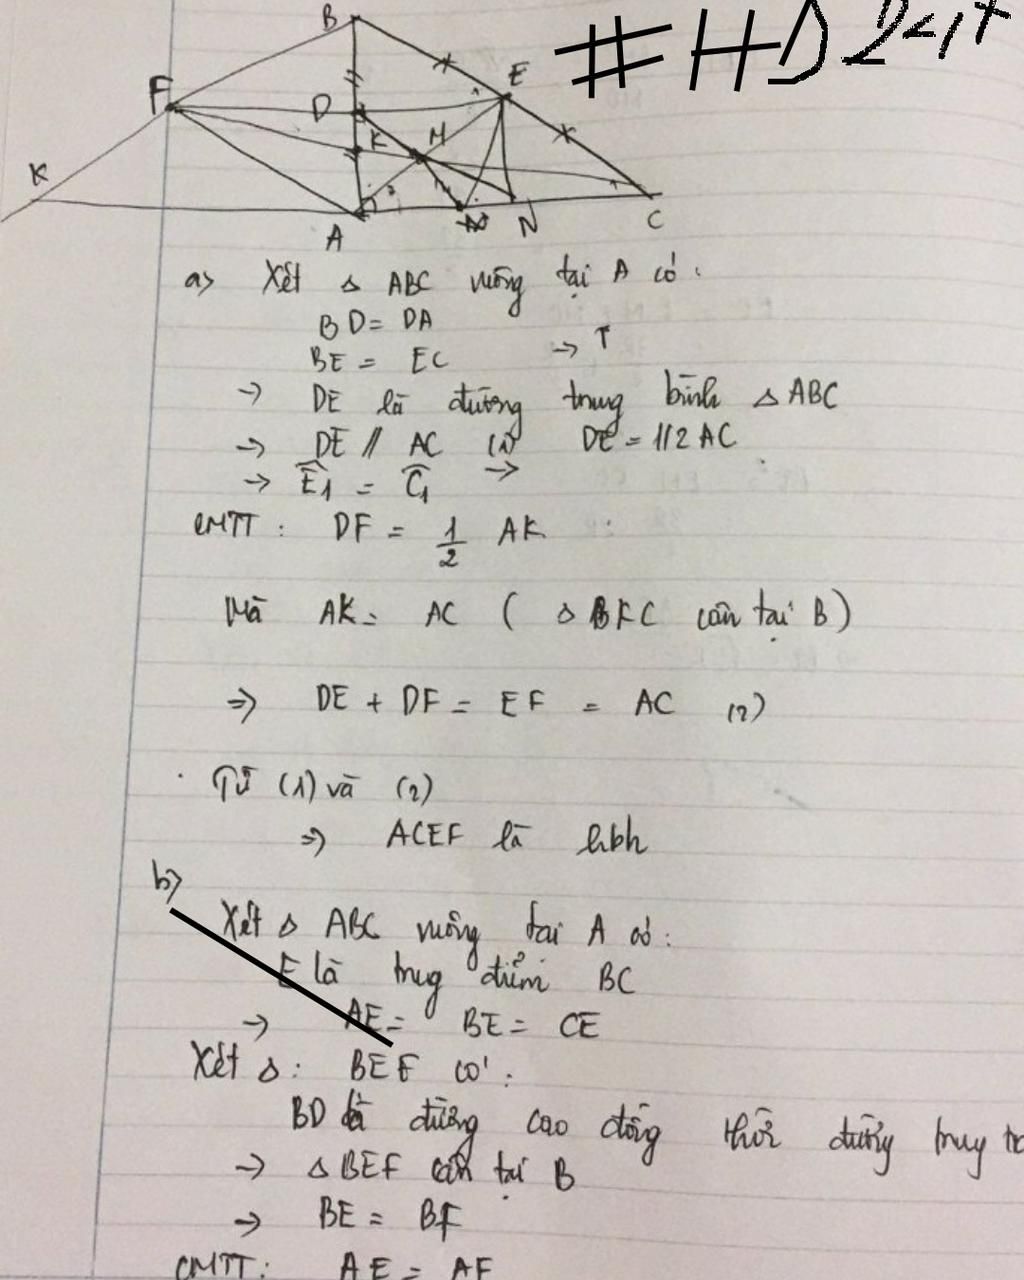 #HD 2<17
B
F
D
E
K
K
M
A
N
C
a) Xét Δ ABC vuông tại A có:
BD = DA
BE = EC → T
→ DE là đường trung bình Δ ABC
→ DE // AC (1) DE = 1/2 AC
→ Ê1 = Ĉ1 →
CMTT: DF = 1/2 AK
Mà AK = AC ( Δ BKC cân tại B)
=> DE + DF = EF = AC (2)
Từ (1) và (2)
=> ACEF là hbh
b)
Xét Δ ABC vuông tại A có:
E là trug điểm BC
→ AE = BE = CE
Xét Δ: BEF có:
BD là đường cao đồng thời đường truy
→ Δ BEF cân tại B
→ BE = BF
CMTT: AE = AF